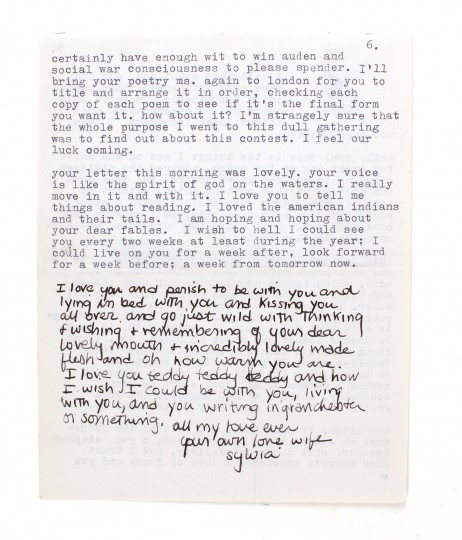 6.
certainly have enough wit to win auden and
social war consciousness to please spender. I'll
bring your poetry ms. again to london for you to
title and arrange it in order, checking each
copy of each poem to see if it's the final form
you want it. how about it? I'm strangely sure that
the whole purpose I went to this dull gathering
was to find out about this contest. I feel our
luck ooming.
your letter this morning was lovely. your voice
is like the spirit of god on the waters. I really
move in it and with it. I love you to tell me
things about reading. I loved the american indians
and their tails. I am hoping and hoping about
your dear fables. I wish to hell I could see
you every two weeks at least during the year; I
could live on you for a week after, look forward
for a week before; a week from tomorrow now.
I love you and perish to be with you and
lying in bed with you and kissing you
all over and go just wild with thinking
+ wishing + remembering of your dear
lovely mouth + incredibly lovely made
flesh and oh how warm you are.
I love you teddy teddy teddy and how
I wish I could be with you, living
with you, and you writing in grantchester
or something. all my love ever
your own love wife
sylvia